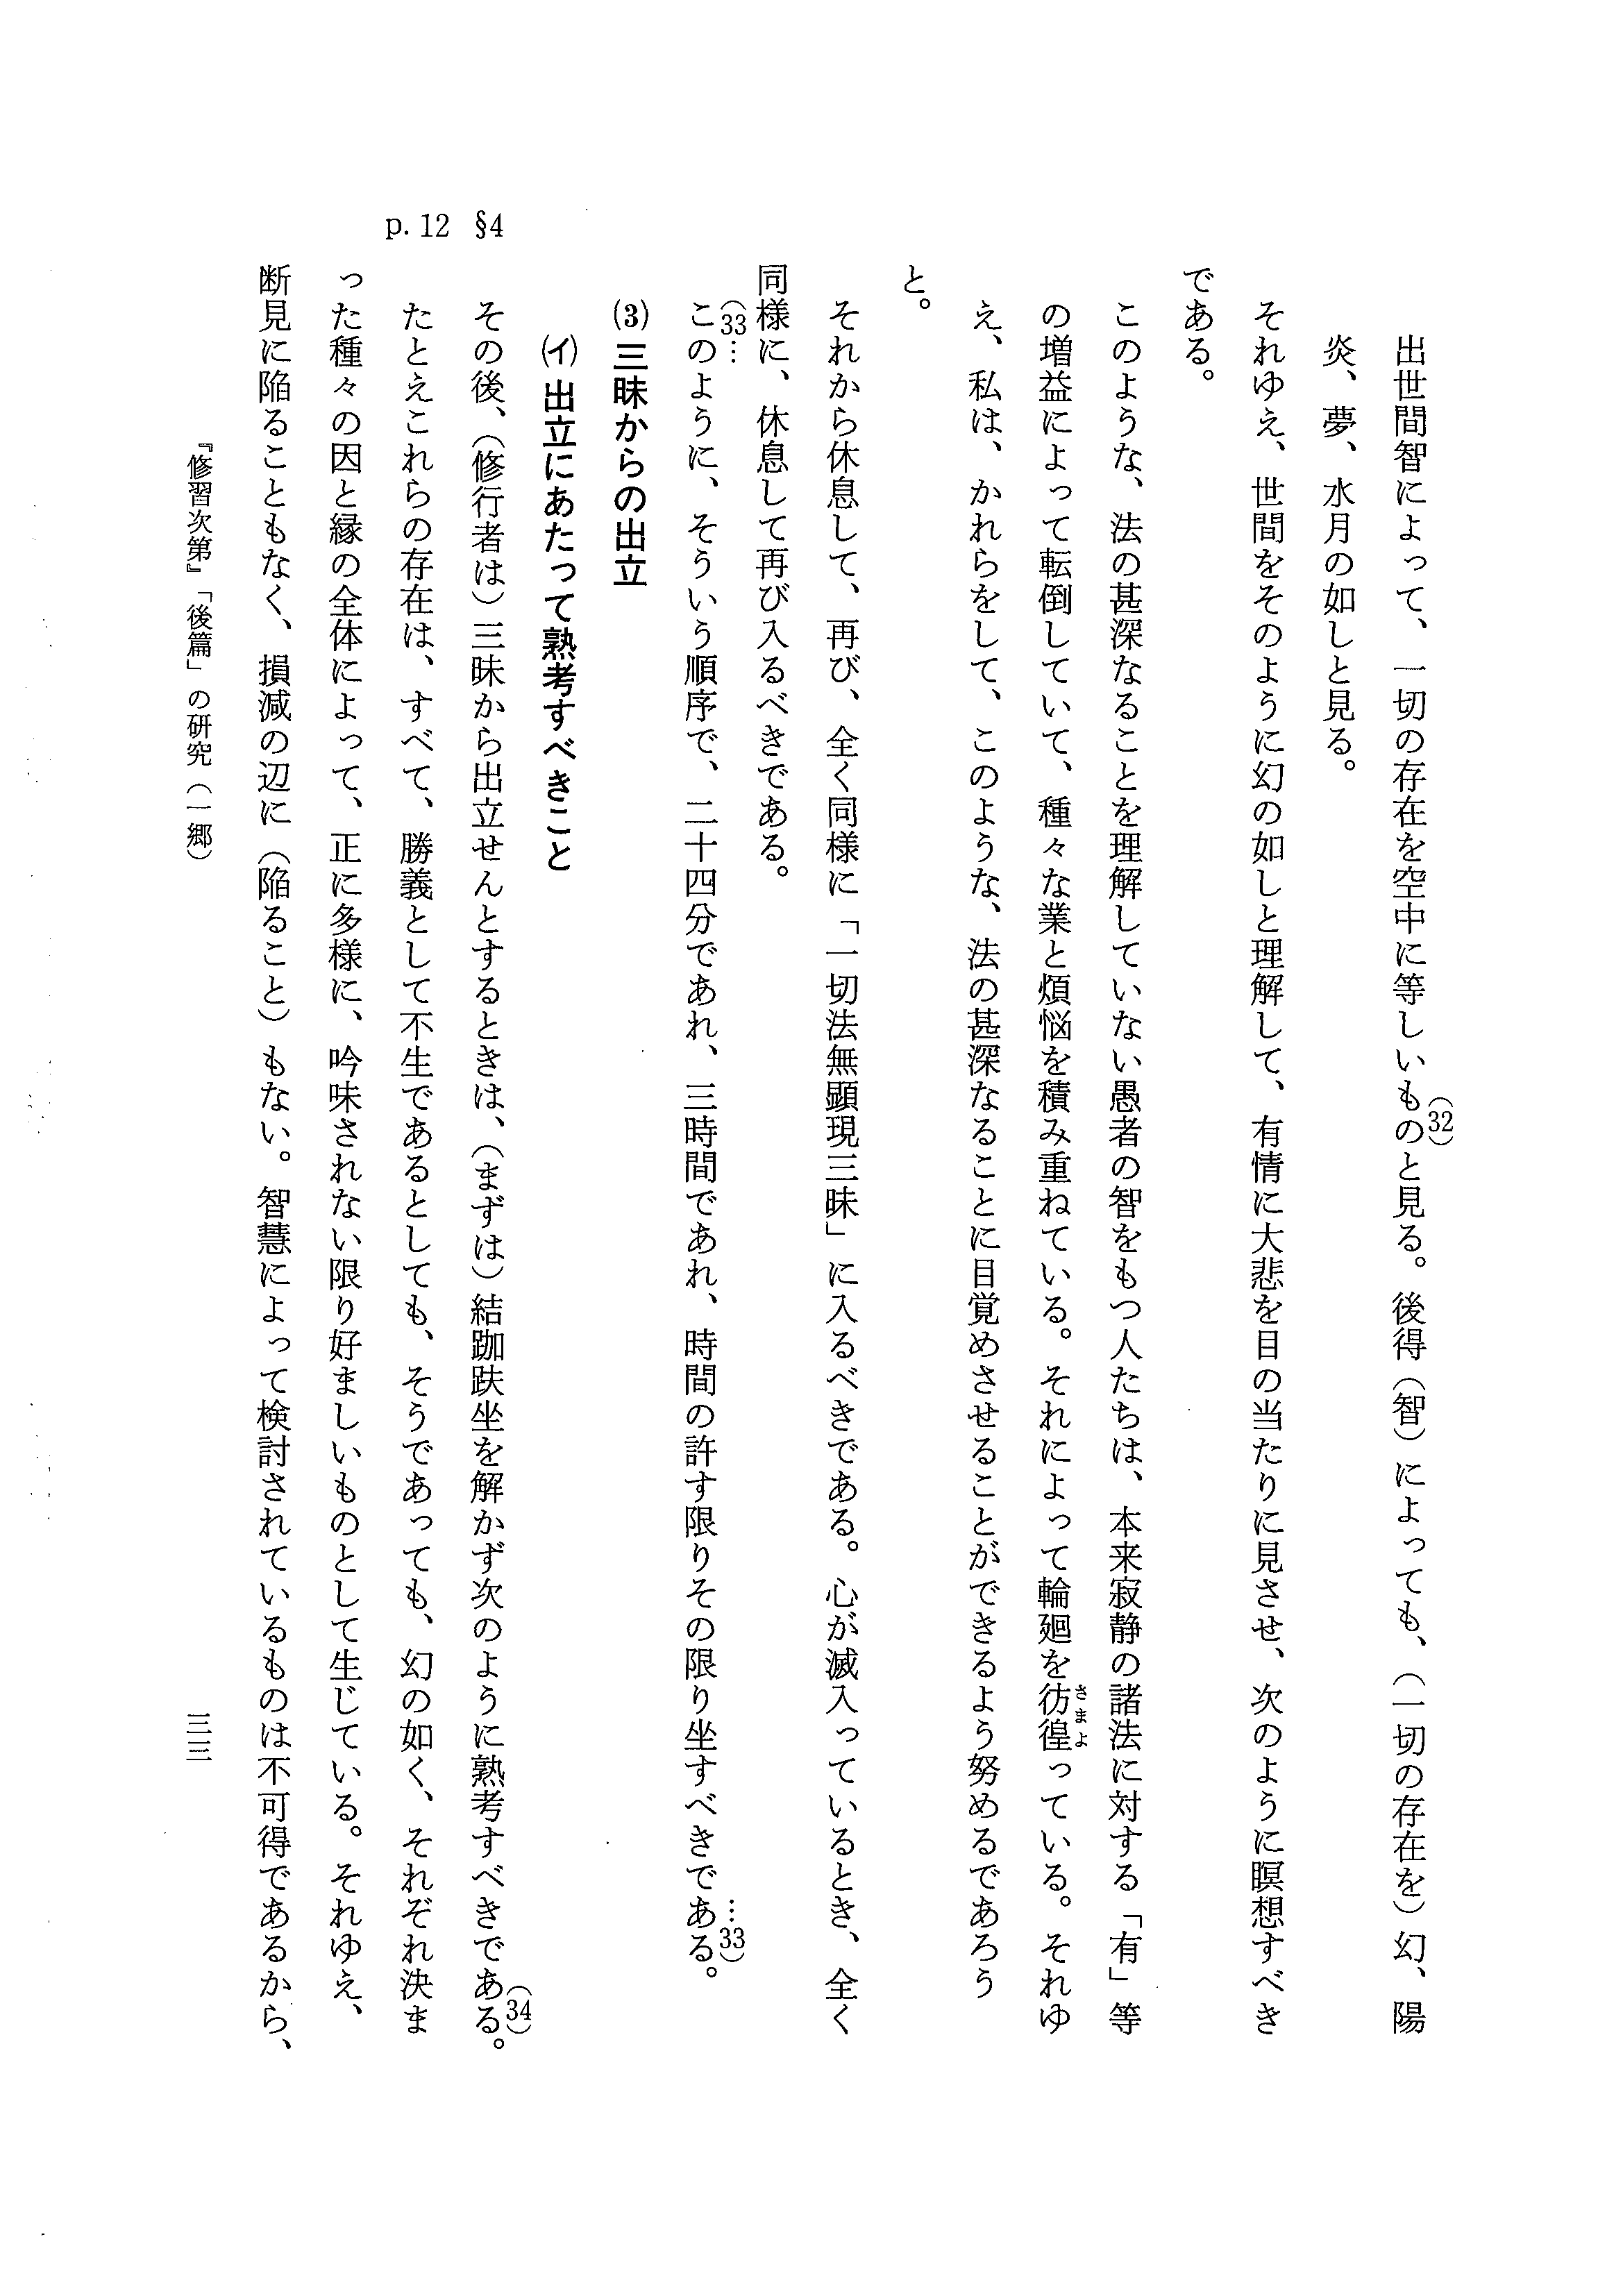 出世間智によって、一切の存在を空中に等しいものと見る。後得（智）によっても、（一切の存在を）幻、陽
(32)
炎、夢、水月の如しと見る。
それゆえ、世間をそのように幻の如しと理解して、有情に大悲を目の当たりに見させ、次のように瞑想すべき
である。
このような、法の甚深なることを理解していない愚者の智をもつ人たちは、本来寂静の諸法に対する「有」等
の増益によって転倒していて、種々な業と煩悩を積み重ねている。それによって輪廻を彷徨っている。それゆ
さまよ
え、私は、かれらをして、このような、法の甚深なることに目覚めさせることができるよう努めるであろう
と。
それから休息して、再び、全く同様に「一切法無顕現三昧」に入るべきである。心が滅入っているとき、全く
同様に、休息して再び入るべきである。
(33…
このように、そういう順序で、二十四分であれ、三時間であれ、時間の許す限りその限り坐すべきである。
…33)
(3) 三昧からの出立
(イ) 出立にあたって熟考すべきこと
p. 12 §4
その後、（修行者は）三昧から出立せんとするときは、（まずは）結跏趺坐を解かず次のように熟考すべきである。
(34)
たとえこれらの存在は、すべて、勝義として不生であるとしても、そうであっても、幻の如く、それぞれ決ま
った種々の因と縁の全体によって、正に多様に、吟味されない限り好ましいものとして生じている。それゆえ、
断見に陥ることもなく、損減の辺に（陥ること）もない。智慧によって検討されているものは不可得であるから、
『修習次第』「後篇」の研究（一郷）
三三